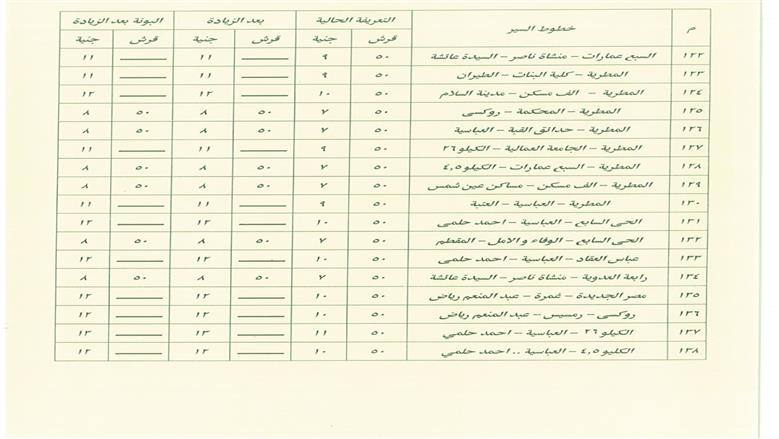 م خطوط السير التعريفة الحالية بعد الزيادة البونة بعد الزيادة
قرش جنية قرش جنية قرش جنية
١٢٢ السبع عمارات – منشاة ناصر – السيدة عائشة ٥٠ ٩ —— ١١ —— ١١
١٢٣ المطرية – كلية البنات – الطيران ٥٠ ٩ —— ١١ —— ١١
١٢٤ المطرية – الف مسكن – مدينة السلام ٥٠ ١٠ —— ١٢ —— ١٢
١٢٥ المطرية – المحكمة – روكسى ٥٠ ٧ ٥٠ ٨ ٥٠ ٨
١٢٦ المطرية – حدائق القبة – العباسية ٥٠ ٧ ٥٠ ٨ ٥٠ ٨
١٢٧ المطرية – الجامعة العمالية – الكيلو ٢٦ ٥٠ ٩ —— ١١ —— ١١
١٢٨ المطرية – السبع عمارات – الكيلو ٤,٥ ٥٠ ٧ ٥٠ ٨ ٥٠ ٨
١٢٩ المطرية – الف مسكن – مساكن عين شمس ٥٠ ٧ ٥٠ ٨ ٥٠ ٨
١٣٠ المطرية – العباسية – العتبة ٥٠ ٩ —— ١١ —— ١١
١٣١ الحى السابع – العباسية – احمد حلمى ٥٠ ١٠ —— ١٢ —— ١٢
١٣٢ الحى السابع – الوفاء و الامل – المقطم ٥٠ ٧ ٥٠ ٨ ٥٠ ٨
١٣٣ عباس العقاد – العباسية – احمد حلمى ٥٠ ١٠ —— ١٢ —— ١٢
١٣٤ رابعة العدوية – منشاة ناصر – السيدة عائشة ٥٠ ٧ ٥٠ ٨ ٥٠ ٨
١٣٥ مصر الجديدة – غمرة – عبد المنعم رياض ٥٠ ١٠ —— ١٢ —— ١٢
١٣٦ روكسى – رمسيس – عبد المنعم رياض ٥٠ ١٠ —— ١٢ —— ١٢
١٣٧ الكيلو ٢٦ – العباسية – احمد حلمي ٥٠ ١١ —— ١٣ —— ١٣
١٣٨ الكليو ٤,٥ – العباسية .. احمد حلمي ٥٠ ١٠ —— ١٢ —— ١٢